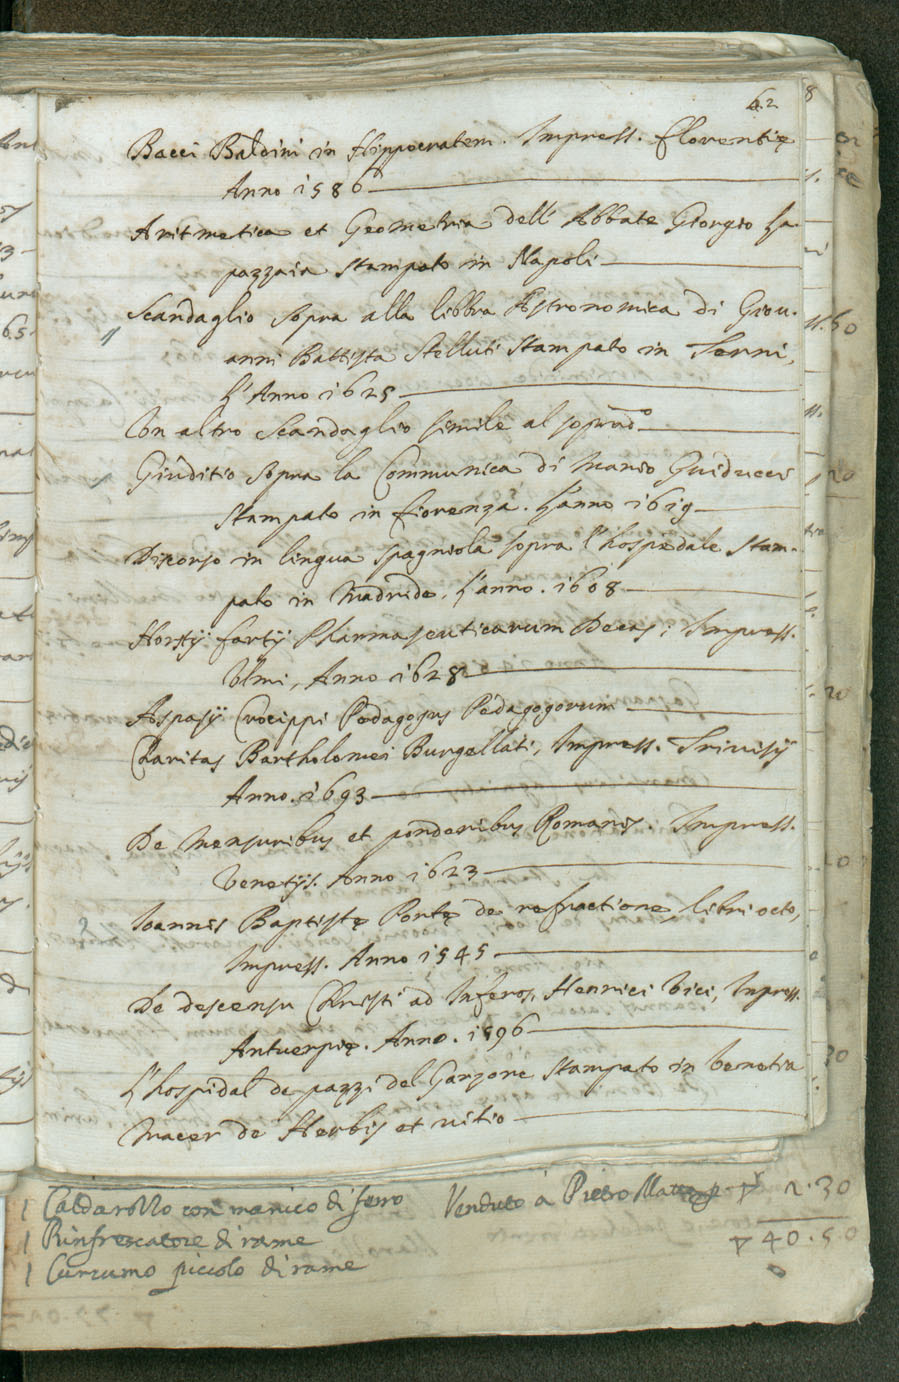 62
8
Bacci Baldini in Hippocratem. Impress. Florentię
Anno 1586
Aritmetica et Geometria dell' Abbate Giorgio La-
pazzaia stampato in Napoli
Scandaglio sopra alla libbra Astronomica di Giou-
anni Battista Stelluti stampato in Terni,
L'Anno 1625
Un altro scandaglio simile al soprado
Giuditio sopra la Communica di Mario Guiducci
stampato in fiorenza. L'anno 1619
Discorso in lingua spagniola sopra l'hospedale stam-
pato in Madrido. L'anno. 1608
Horstij fartij Pharmaseuticarum Decas; Impress.
Ulmi, Anno 1628
Aspasij Crocippi Pedagogus Pedagogorum
Charitas Bartholomei Burgellati, Impress. Trivisij
Anno. 1693
De mensuribus et ponderibus Romanis. Impress.
Venetijs. Anno 1623
Ioannis Baptistę Portę de refractione, libri octo,
Impress. Anno 1545
De descensu Christi ad Inferos, Henrici Vici, Inpress.
Antuerpię. Anno. 1596
L'hospidal de pazzi del Garzone stampato in Venetia
Macer de Herbis et vitio
1 Caldarozzo con manico di ferro Venduto a Pietro 2.30
1 Rinfrescatore di rame 40.50
1 Cucumo piccolo di rame